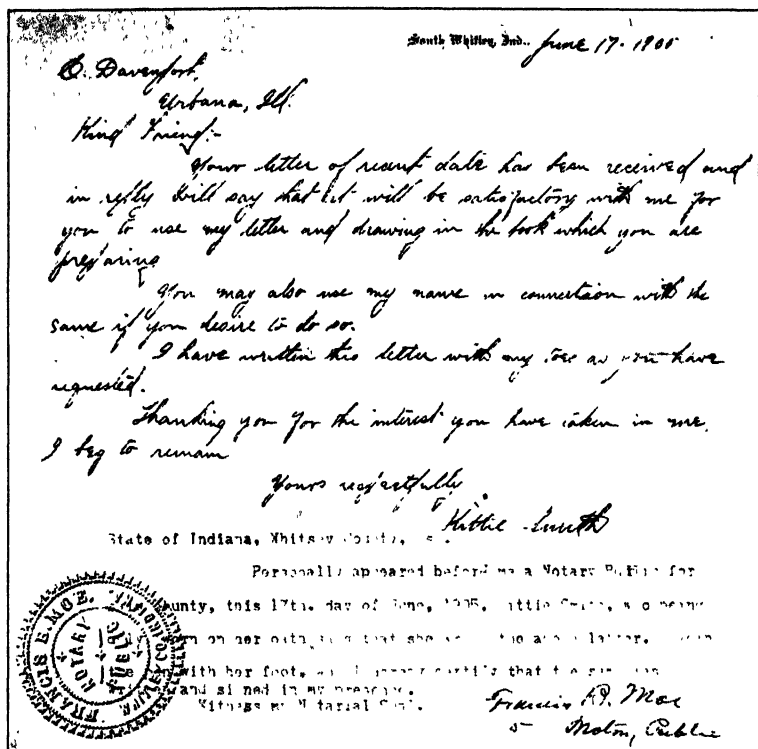 South Whitley, Ind., June 17. 1905
C. Davenport,
Urbana, Ill.
Kind Friend:-
Your letter of recent date has been received and
in reply will say that it will be satisfactory with me for
you to use my letter and drawing in the book which you are
preparing
You may also use my name in connection with the
same if you desire to do so.
I have written this letter with my toes as you have
requested.
Thanking you for the interest you have taken in me,
I beg to remain
Yours respectfully,
Kittie Smith
State of Indiana, Whitley County,
Personally appeared before me a Notary Public for
County, this 17th. day of June, 1905, Kittie Smith,
on her oath, that she the letter.
with her foot, certify that
and signed in my presence.
Witness my Notarial Seal.
FRANCIS E. MOE.
NOTARY
PUBLIC
Francis E. Moe
Notary Public